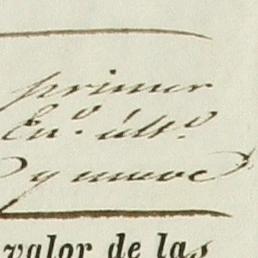 primer
En.º últ.º
y nueve
valor de las